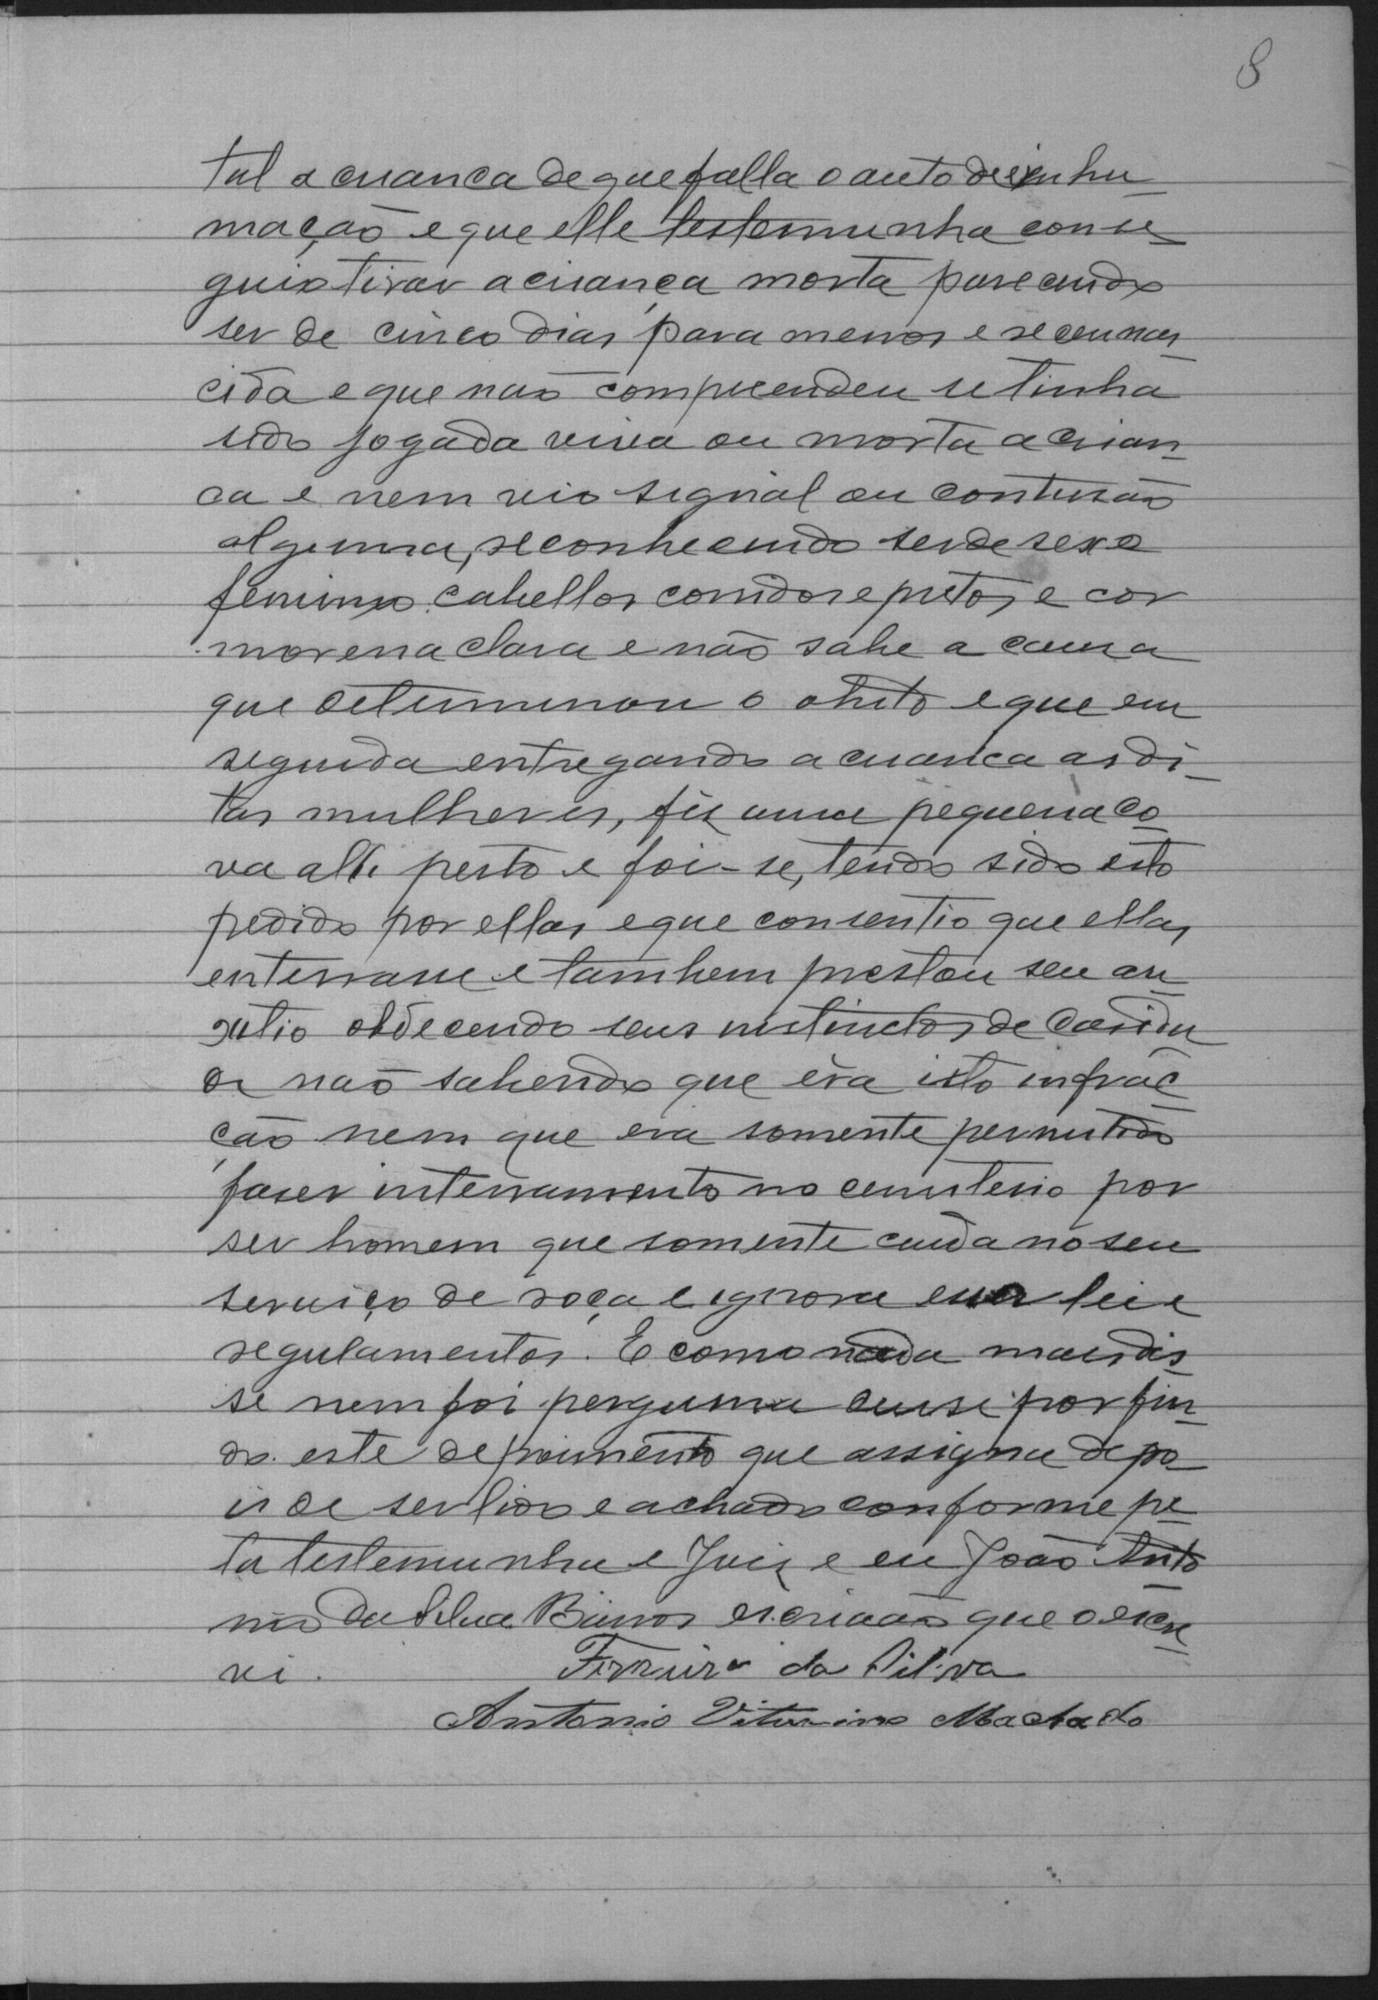 8
tal a criança de que falla o auto de exhu-
mação e que elle testemunha conse-
guio tirar a criança morta parecendo
ser de cinco dias para menos e recennas-
cida e que não comprendeu se tinha
sido jogada viva ou morta a crian-
ca e nem vio signal ou contusão
alguma, reconhecendo ser de sexo
feminino cabellos corridos e pretos, e cor
morena clara e não sabe a causa
que determinou o obito e que em
seguida entregando a criança as di-
tas mulheres, fez uma pequena co-
va alli perto e foi-se, tendo sido isto
pedido por ellas e que consentio que ellas
enterrasse e tambem prestou seu au-
xilio obdecendo seus instinctos de carida
de não sabendo que éra isto infrac-
ção nem que era somente permitido
faser interramento no cemiterio por
ser homem que somente cuida no seu
serviço de roça e ignora essa lei e
regulamentos. E como nada mais dis-
se nem foi pergunta deuse por fin-
do este depoimento que assigna depo-
is de ser lido e achado conforme pe-
la testemunha e Juiz e eu João Anto
nio da Silva Barros escrivão que o escre
vi. Ferreira da Silva
Antonio Viturino Machado